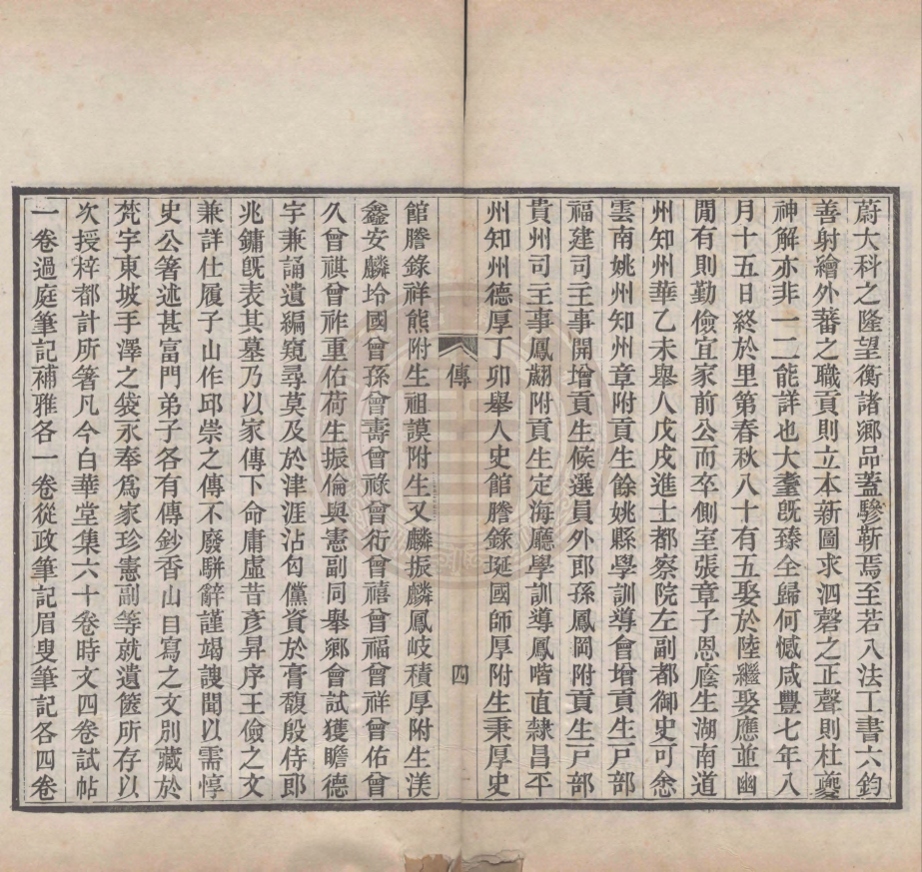 蔚大科之隆望衡諸鄉品蓋驂靳焉至若八法工書六鈞
善射繪外蕃之職貢則立本新圖求泗磬之正聲則杜夔
神解亦非一二能詳也大耋旣臻全歸何憾咸豐七年八
月十五日終於里第春秋八十有五娶於陸繼娶應並幽
閒有則勤儉宜家前公而卒側室張章子恩廕生湖南道
州知州華乙未舉人戊戌進士都察院左副都御史可悆
雲南姚州知州章附貢生餘姚縣學訓導會增貢生戸部
福建司主事開增貢生候選員外郎孫鳳岡附貢生戸部
貴州司主事鳳翽附貢生定海廳學訓導鳳喈直隸昌平
州知州德厚丁卯舉人史館謄錄埏國師厚附生秉厚史
傳
四
館謄錄祥熊附生祖謨附生又麟振麟鳳岐積厚附生渼
鑫安麟坽國曾孫曾壽曾祿曾衍曾禧曾福曾祥曾佑曾
久曾祺曾祚重佑荷生振倫與憲副同舉鄉會試獲瞻德
宇兼誦遺編窺尋莫及於津涯沾匄儻資於膏馥殷侍郎
兆鏞旣表其墓乃以家傳下命庸虛昔彥昇序王儉之文
兼詳仕履子山作邱崇之傳不廢駢辭謹竭謏聞以需惇
史公箸述甚富門弟子各有傳鈔香山自寫之文別藏於
梵宇東坡手澤之袋永奉爲家珍憲副等就遺篋所存以
次授梓都計所箸凡今白華堂集六十卷時文四卷試帖
一卷過庭筆記補雅各一卷從政筆記眉叟筆記各四卷